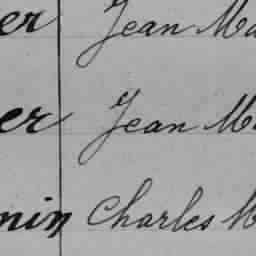 er Jean Ma
er Jean M
nin Charles M